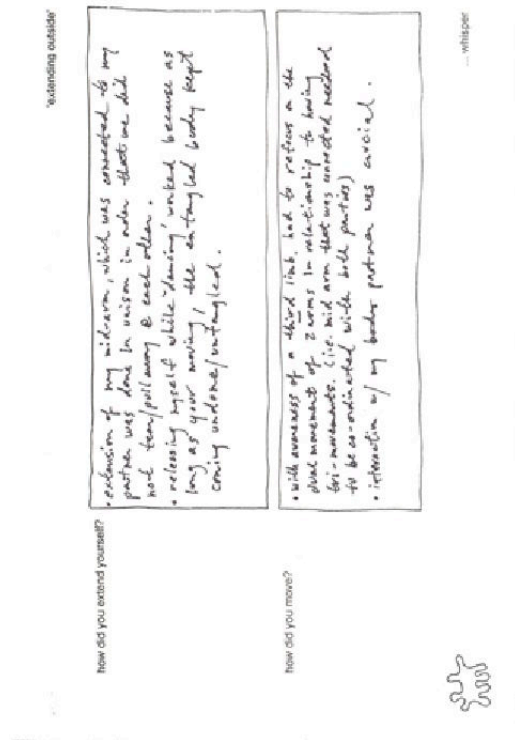 'extending outside'
how did you extend yourself?
• extension of my mid-arm, which was connected to my
partner was done in unison in order that we did
not tear/pull away @ each other.
• releasing myself while 'dancing' worked because as
long as your moving, the entangled body kept
coming undone/untangled.
how did you move?
• with awareness of a third limb. had to refocus on the
dual movement of 2 arms in relationship to having
tri-movements. (i.e. mid arm that was connected needed
to be co-ordinated with both parties)
• interaction w/ my bodys partner was crucial.
... whisper